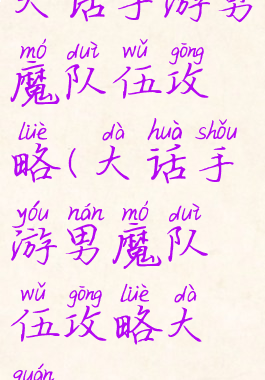 大话手游男
mó duì wǔ gōng
魔队伍攻
lüè dà huà shǒu
略(大话手
yóu nán mó duì
游男魔队
wǔ gōng lüè dà
伍攻略大
quán